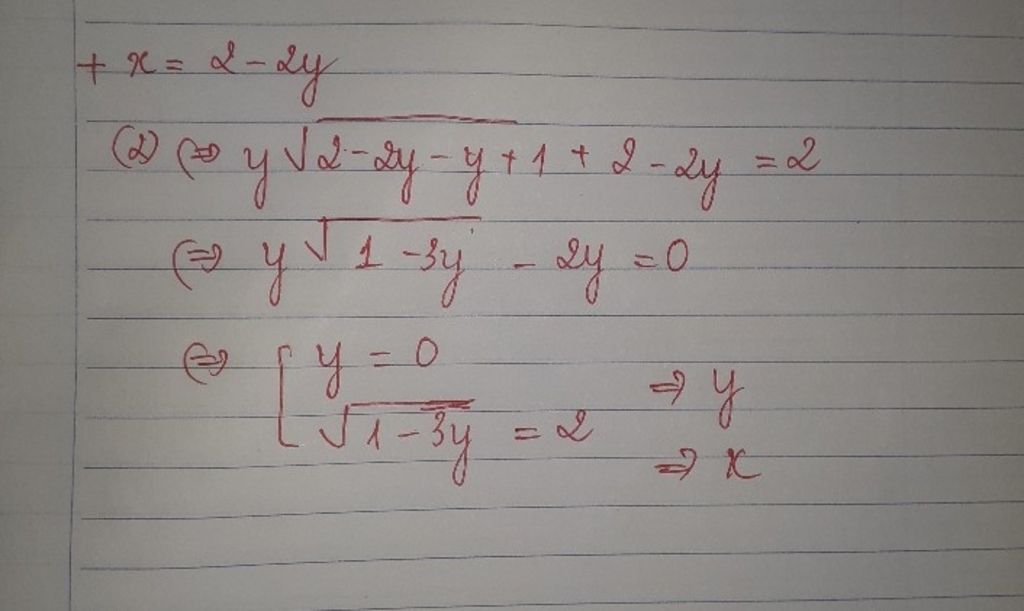 + x = 2 - 2y
(2) (=> y √2 - 2y - y + 1 + 2 - 2y = 2
(=> y √1 - 3y - 2y = 0
(=> [ y = 0
√1 - 3y = 2 => y
=> x